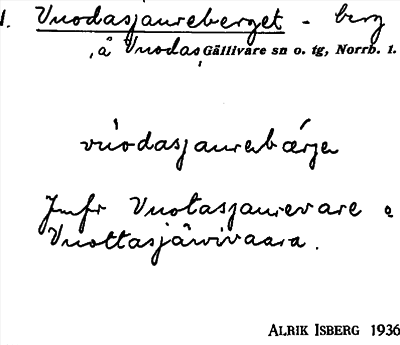 1. Vuodasjaureberget - berg
, å Vuodas Gällivare sn o. tg, Norrb. l.
vuodasjaurebærje
Jmfr Vuotasjaurevare o
Vuottasjärvivaara.
ALRIK ISBERG 1936